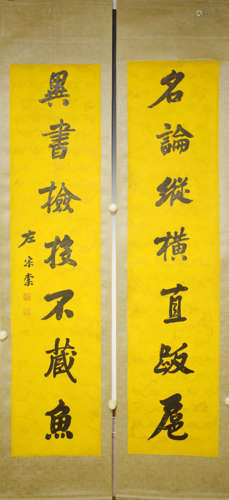 名論縱橫直
異書撿授不藏魚
左宗棠